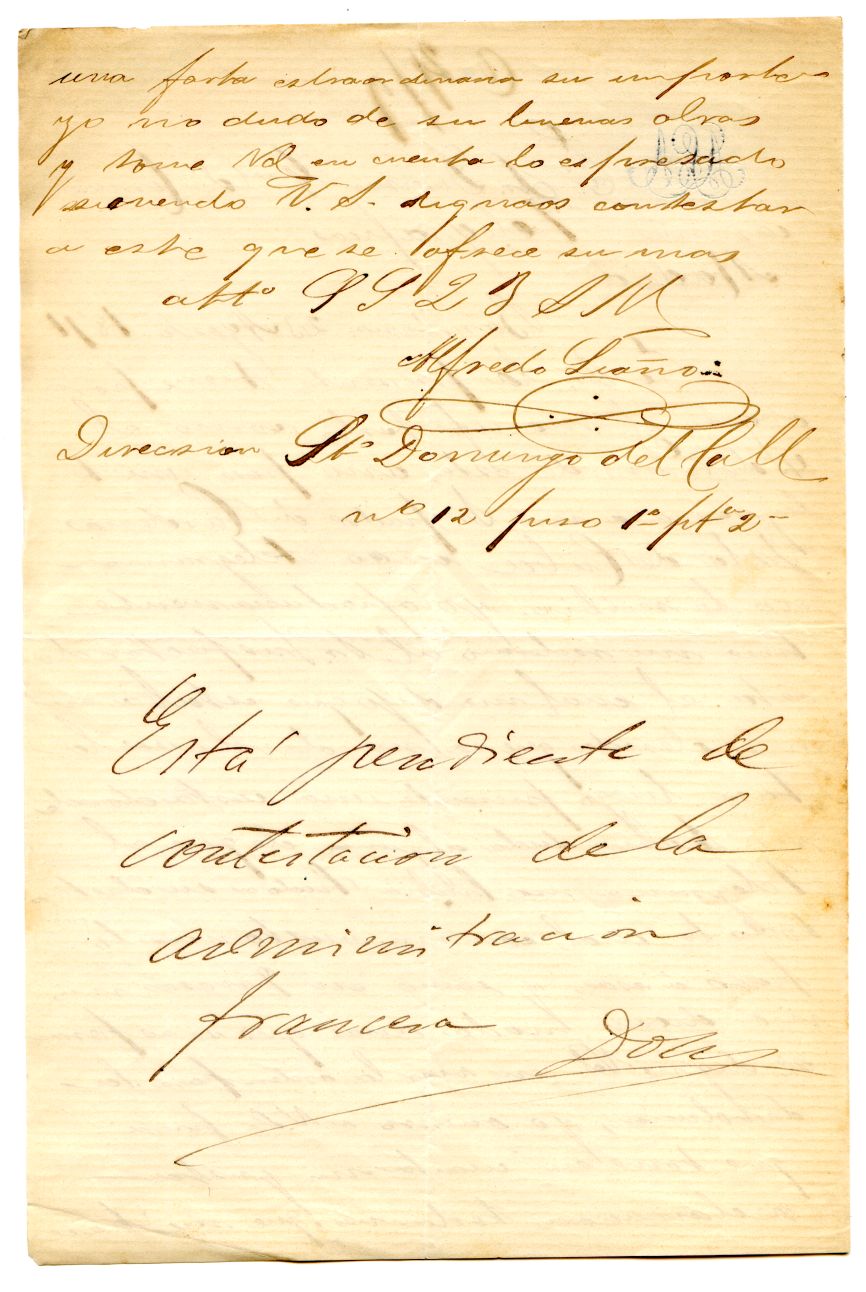 una farta estraordinaria su importe
yo no dudo de su buenas obras
y tome Vd en cuenta lo espresado
sirviendo V. S. dignaos contestar
a este que se ofrece su mas
att.º S S Q B S M
Alfredo Liaño
Direcsion St.º Domingo del Call
nº 12 piso 1º pta 2ª
Está pendiente de
contestacion de la
administración
francesa